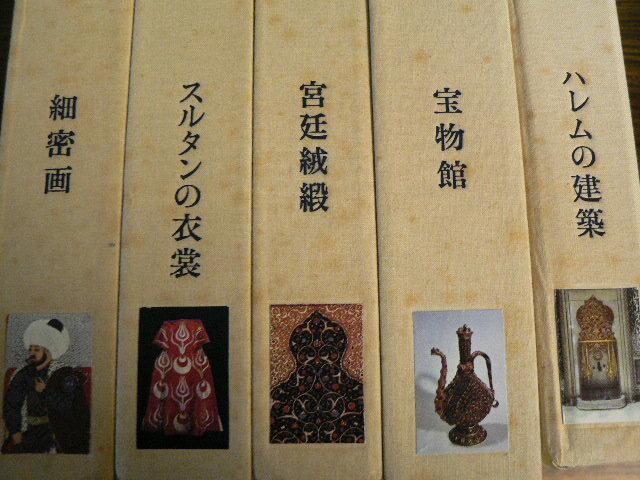 細密画
スルタンの衣裳
宮廷絨緞
宝物館
ハレムの建築